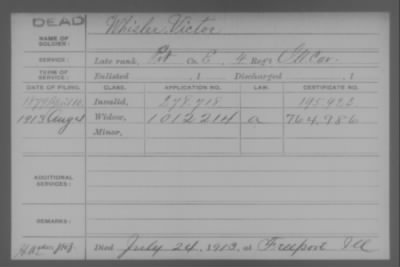 DEAD
NAME OF SOLDIER: Whisler, Victor
SERVICE: Late rank, Pvt Co. E, 4 Reg't Cav.
TERM OF SERVICE: Enlisted , 1 Discharged , 1
DATE OF FILING. CLASS. APPLICATION NO. LAW. CERTIFICATE NO.
1879 Invalid, 278,718 195,923
1913 Aug 4 Widow, 1012214 a 764,986
Minor,
ADDITIONAL SERVICES:
REMARKS:
Died July 24, 1913, at Freeport Ill